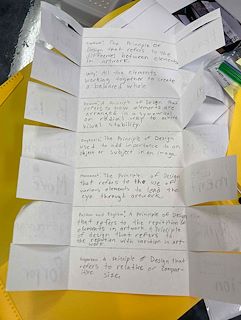 Contrast: The Principle of
Design that refers to the
difference between elements
in artwork.
Unity: All the elements
working together to create
a balanced whole.
Balance: A Principle of Design that
refers to how elements are
arranged in a symmetrical
or radial way to create
visual stability.
Emphasis: The Principle of Design
used to add importance to an
object or subject in an image.
Movement: The Principle of Design
that refers to the use of
various elements to lead the
eye through artwork.
Pattern and Rhythm: A Principle of Design
that refers to the repetition of
elements in artwork. A Principle
of design that refers to
the repetition with variation in art-
work.
Proportion: A principle of Design that
refers to relative or compar-
ative size.